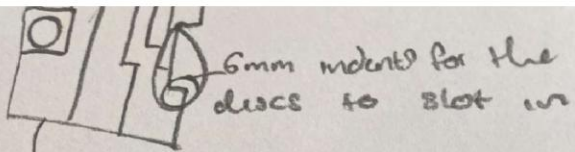 6mm indents for the
discs to slot in